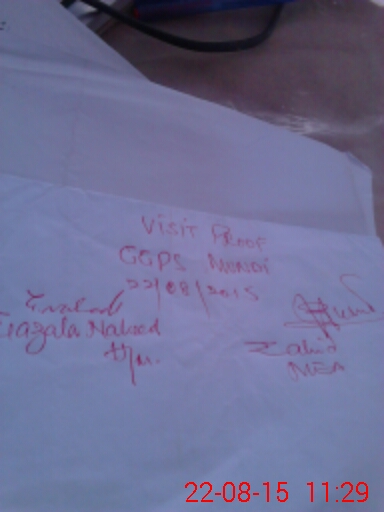 Visit Proof
GGPS Mundi
22/08/2015
Gazala Naheed
Zahid
MEA
22-08-15 11:29